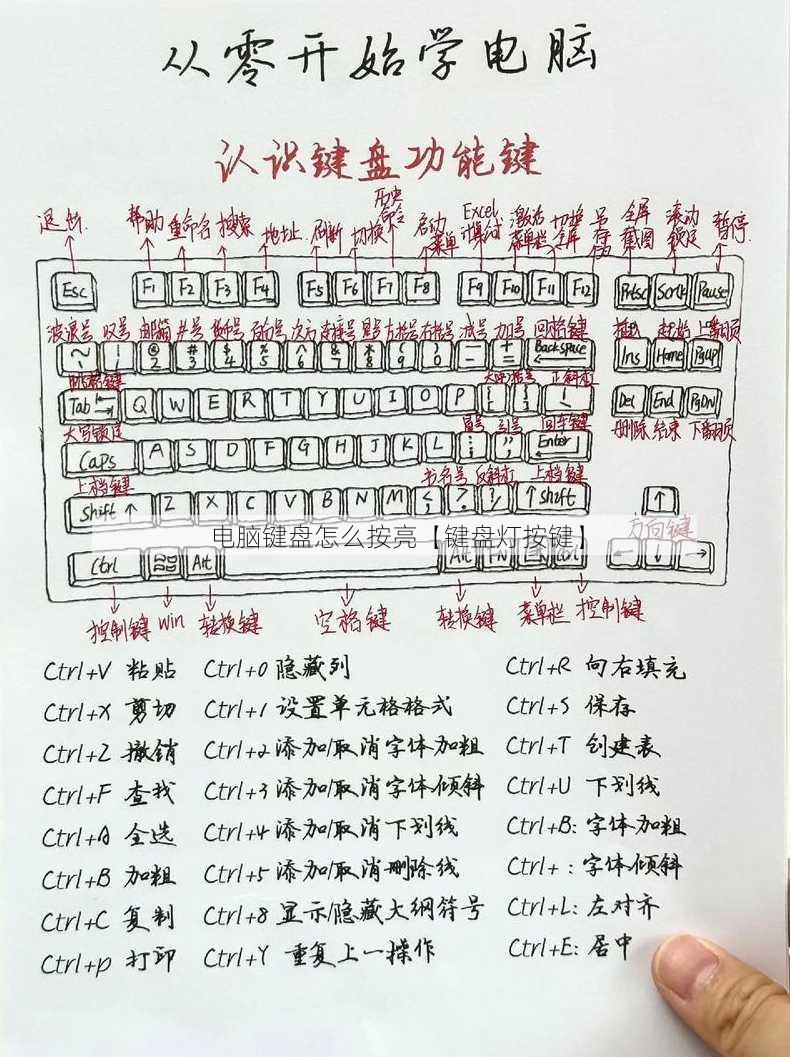 从零开始学电脑
认识键盘功能键
历史命令
退出 帮助 重命名 搜索 地址 刷新 切换 启动菜单 Excel计算公式 激活菜单栏 切换全屏 另存为 全屏截图 滚动锁定 暂停
Esc F1 F2 F3 F4 F5 F6 F7 F8 F9 F10 F11 F12 Prtsc Scrlk Pause
波浪号 叹号 邮箱 #号 百分号 次方 连接号 星号 左括号 右括号 减号 加号 回格键 插入 起始 上翻页
~ ! @ 2 # 3 $ 4 % 5 ^ 6 & 7 * 8 ( 9 ) 0 - + = Backspace Ins Home PgUP
跳格键 大中括号 正斜杠
Tab Q W E R T Y U I O P { [ } ] \ Del End PgDN
大写锁定 冒号 引号 回车键 删除 结束 下翻页
Caps A S D F G H J K L : ; " , Enter
上档键 书名号 反斜杠 上档键
Shift ↑ Z X C V B N M < , ? / ↑ Shift ↑
电脑键盘怎么按亮【键盘灯按键】 方向键
Ctrl Alt Alt FN Ctrl ← ↓ →
控制键 win 转换键 空格键 转换键 菜单栏 控制键
Ctrl+V 粘贴 Ctrl+0 隐藏列 Ctrl+R 向右填充
Ctrl+X 剪切 Ctrl+1 设置单元格格式 Ctrl+S 保存
Ctrl+Z 撤销 Ctrl+2 添加/取消字体加粗 Ctrl+T 创建表
Ctrl+F 查找 Ctrl+3 添加/取消字体倾斜 Ctrl+U 下划线
Ctrl+A 全选 Ctrl+4 添加/取消下划线 Ctrl+B: 字体加粗
Ctrl+B 加粗 Ctrl+5 添加/取消删除线 Ctrl+ : 字体倾斜
Ctrl+C 复制 Ctrl+8 显示/隐藏大纲符号 Ctrl+L: 左对齐
Ctrl+p 打印 Ctrl+Y 重复上一操作 Ctrl+E: 居中